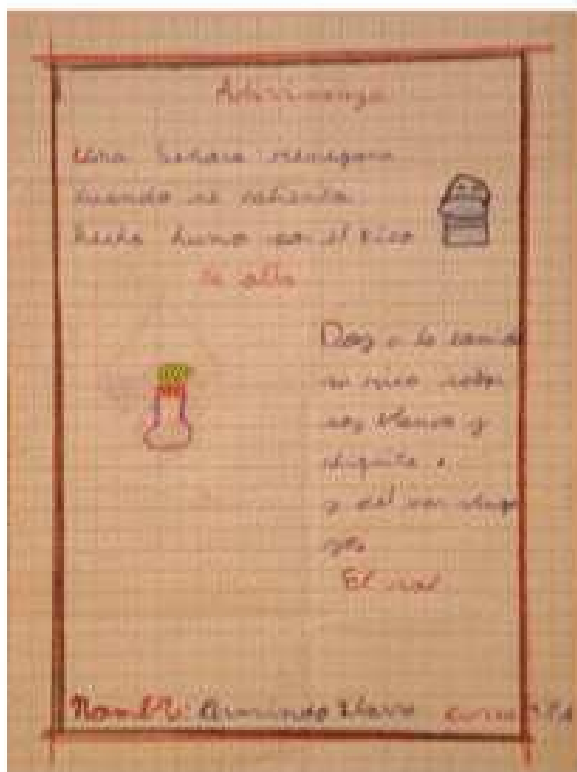 Adivinanza
Una señora
cuando se calienta
hecha humo por el Pico
la olla
Doy a la comida
mi rico sabor
soy blanca y
chiquita,
y del mar vengo
yo.
El sal
Nombre: Armindo curso